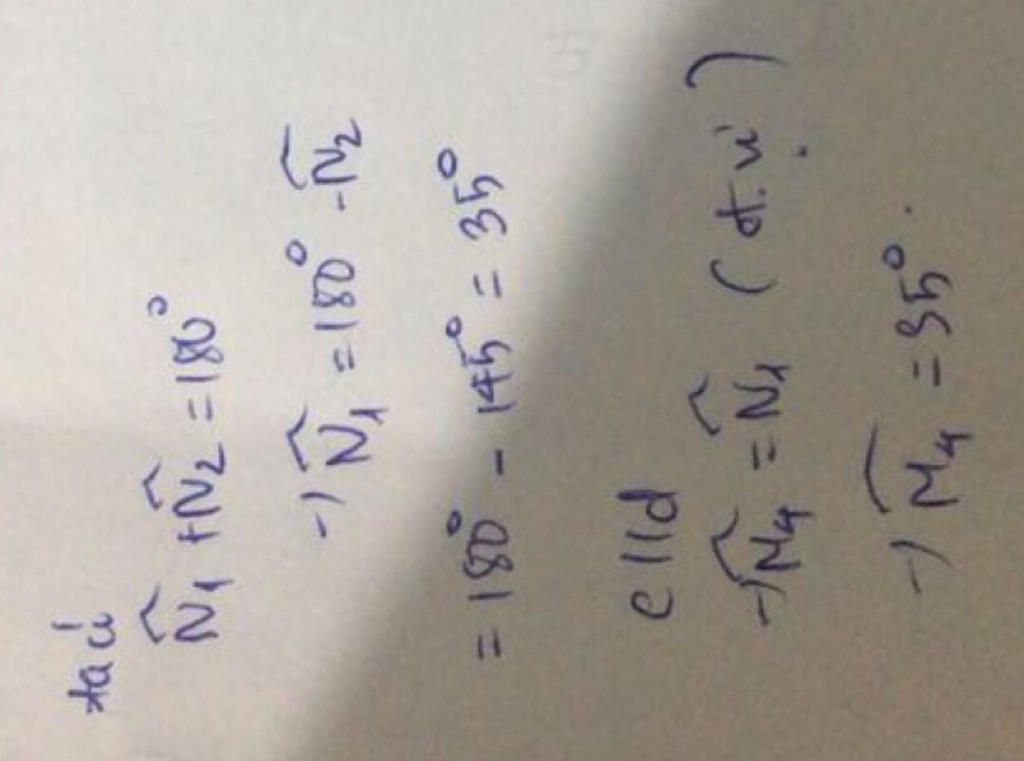 ta có
N̂₁ + N̂₂ = 180°
→ N̂₁ = 180° - N̂₂
= 180° - 145° = 35°
c // d
→ M̂₄ = N̂₁ (đ.vị)
→ M̂₄ = 35°.